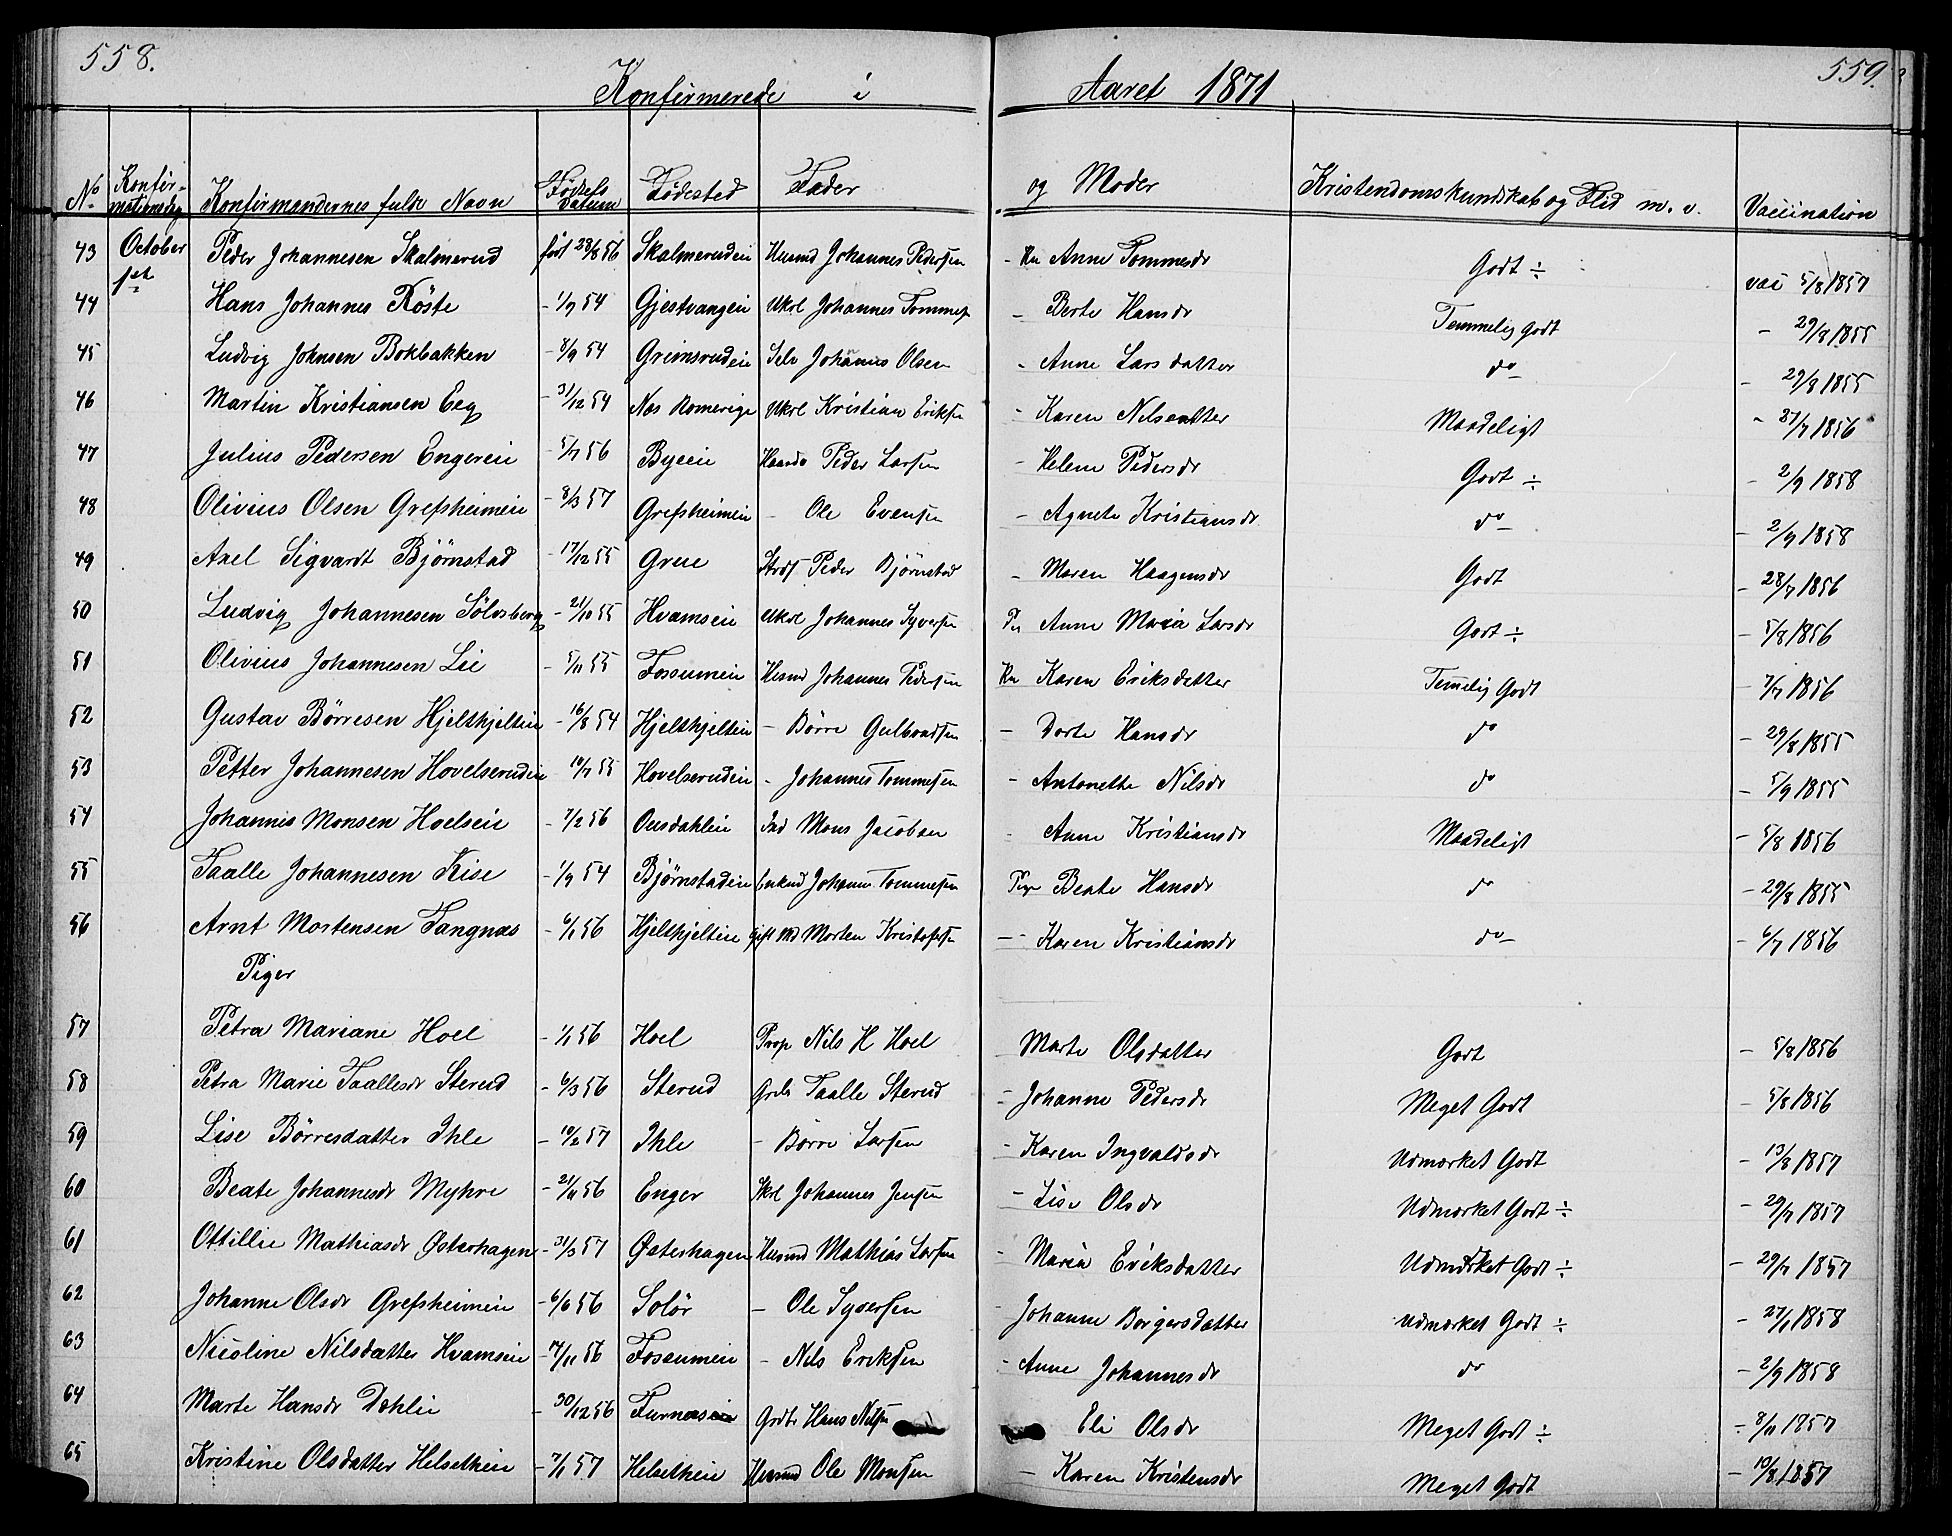 558.
559.
Konfirmerede i Aaret 1871
No Konfirmationsdag Konfirmandernes fulde Navn Fødsels Datum Fødested Fader og Moder Kristendomskundskab og Flid m. v. Vaccination
43 October 1st Peder Johannesen Skalmerud født 23/8 56 Skalmerudeie Husmd Johannes Pedersen - Anne Tommesdr Godt ÷ vac 5/8 1857
44 Hans Johannes Röste - 1/9 54 Gjestvangeie Johannes Tommes - Berte Hansdr Temmelig godt - 29/8 1855
45 Ludvig Johnsen Bokbakken - 8/9 54 Grimsrudeie Selv Johannes Olsen - Anne Larsdatter do - 29/8 1855
46 Martin Kristiansen Eeg - 31/12 54 Nes Romerige Kristian Eriksen - Karen Nilsdatter Maadeligt - 27/7 1856
47 Julius Pedersen Engereie 5/7 56 Byeeie Peder Larsen - Helene Pedersdr Godt ÷ - 2/9 1858
48 Olivius Olsen Grefsheimeie - 8/3 57 Grefsheimeie - Ole Evensen - Agnete Kristiansdr do - 2/9 1858
49 Axel Sigvardt Bjørnstad - 17/12 55 Grue Peder Bjørnstad - Maren Haagensdr Godt - 28/7 1856
50 Ludvig Johannesen Sölvsberg - 21/10 55 Hvamseie Johannes Syversen Anne Maria Larsdr Godt ÷ - 5/8 1856
51 Olivius Johannesen Lie - 5/11 55 Fossumeie Husmd Johannes Pedersen Karen Eriksdatter Temelig Godt - 7/7 1856
52 Gustav Børresen Hjelthjelteie - 16/8 54 Hjelthjelteie - Børre Gulbrandsen - Dorte Hansdr do - 29/8 1855
53 Petter Johannesen Hovelsrudeie 10/7 55 Hovelsrudeie - Johannes Tommesen - Antonette Nilsdr do - 5/9 1855
54 Johannes Monsen Hoelseie - 7/2 56 Onsdahleie Ind Mons Jacobsen - Anne Kristiansdr Maadeligt - 5/8 1856
55 Taalle Johannesen Kise - 1/9 54 Bjørnstadeie Johannes Tommesen Pige Beate Hansdr do - 29/8 1855
56 Arnt Mortensen Tangnæs - 6/1 56 Hjelthjelteie Gift Md Morten Kristofersen - Karen Kristiansdr do - 6/7 1856
Piger
57 Petra Mariane Hoel - 1/1 56 Hoel Prop Nils H Hoel Marte Olsdatter Godt - 5/8 1856
58 Petra Marie Taallesdr Sterud - 6/3 56 Sterud Taalle Sterud - Johanne Pedersdr Meget Godt - 5/8 1856
59 Lise Børresdatter Ihle - 10/2 57 Ihle - Børre Larsen - Karen Ingvaldsdr Udmærket Godt - 13/8 1857
60 Beate Johannesdr Myhre - 21/11 56 Enger Johannes Jensen - Lise Olsdr Udmærket Godt ÷ - 29/7 1857
61 Ottillie Mathiasdr Østerhagen - 31/3 57 Østerhagen Husmd Mathias Larsen - Maria Eriksdatter Udmærket Godt ÷ - 29/7 1857
62 Johanne Olsdr Grefsheimeie - 6/6 56 Solör - Ole Syversen - Johanne Børgersdatter Udmærket Godt ÷ - 27/1 1858
63 Nicoline Nilsdatter Hvamseie - 17/11 56 Fossumeie - Nils Eriksen - Anne Johannesdr do - 2/9 1858
64 Marte Hansdr Dæhlie - 30/12 56 Furnæseie Hans Nilsen Eli Olsdr Meget Godt ÷ - 8/11 1857
65 Kristine Olsdatter Helsetheie - 7/1 57 Helsetheie Husmd Ole Monsen - Karen Kristensdr Meget Godt - 10/8 1857